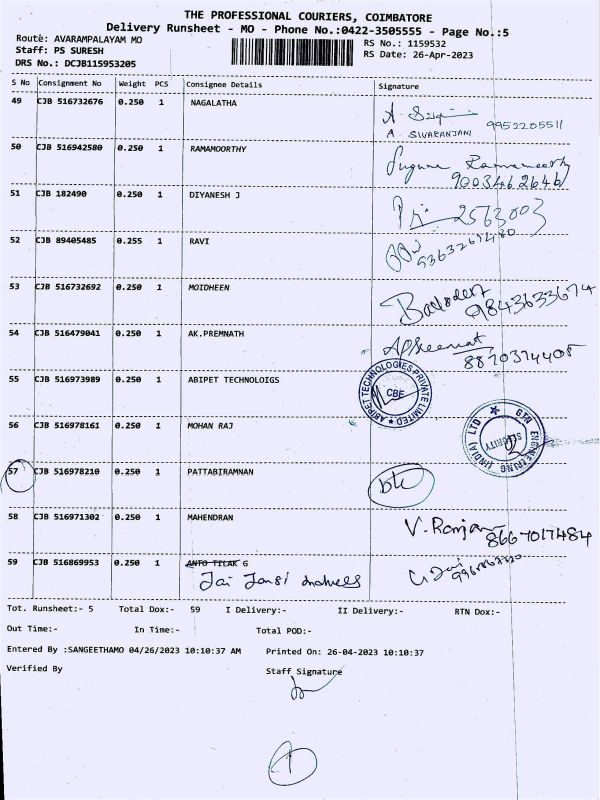 THE PROFESSIONAL COURIERS, COIMBATORE
Delivery Runsheet - MO - Phone No.:0422-3505555 - Page No.:5
Route: AVARAMPALAYAM MO
Staff: PS SURESH
DRS No.: DCJB115953205
RS No.: 1159532
RS Date: 26-Apr-2023
S No Consignment No Weight PCS Consignee Details Signature
49 CJB 516732676 0.250 1 NAGALATHA
A. SIVARANJANI 9952205511
50 CJB 516942580 0.250 1 RAMAMOORTHY
9003462646
51 CJB 182490 0.250 1 DIYANESH J
2563003
52 CJB 89405485 0.255 1 RAVI
53 CJB 516732692 0.250 1 MOIDHEEN
9843633674
54 CJB 516479041 0.250 1 AK.PREMNATH
8870374405
55 CJB 516973989 0.250 1 ABIPET TECHNOLOIGS
ABIPET TECHNOLOGIES PRIVATE LIMITED
CBE
56 CJB 516978161 0.250 1 MOHAN RAJ
GTN ENGINEERING (INDIA) LTD
SECURITY
57 CJB 516978210 0.250 1 PATTABIRAMNAN
58 CJB 516971302 0.250 1 MAHENDRAN
V. Ranjan 8667017484
59 CJB 516869953 0.250 1 ANTO TILAK G
Tot. Runsheet:- 5 Total Dox:- 59 I Delivery:- II Delivery:- RTN Dox:-
Out Time:- In Time:- Total POD:-
Entered By :SANGEETHAMO 04/26/2023 10:10:37 AM Printed On: 26-04-2023 10:10:37
Verified By Staff Signature